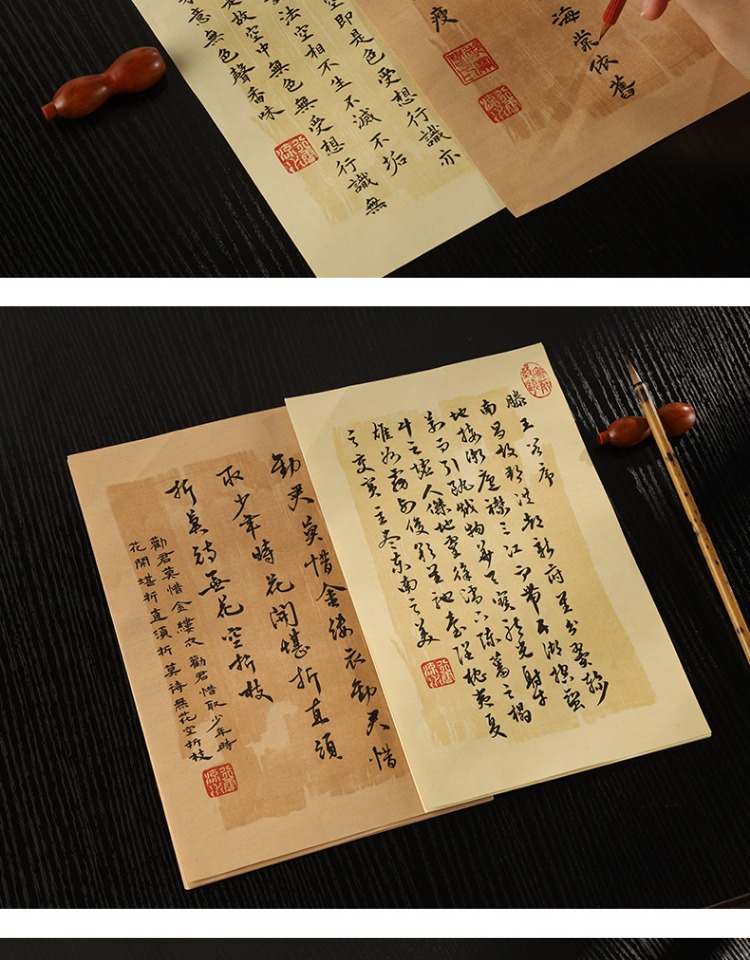 海棠依舊
瘦
空即是色受想行識亦
法空相不生不滅不垢
是故空中無色無受想行識無
意無色聲香味
滕王阁序
南昌故郡洪都新府星分翼轸
地接衡庐襟三江而带五湖控蛮
荆而引瓯越物华天宝龙光射牛
斗之墟人傑地灵徐孺下陈蕃之榻
雄州雾列俊彩星驰台隍枕夷夏
之交宾主尽东南之美
劝君莫惜金缕衣劝君惜
取少年時花開堪折直須
折莫待無花空折枝
勸君莫惜金縷衣勸君惜取少年時
花開堪折直須折莫待無花空折枝